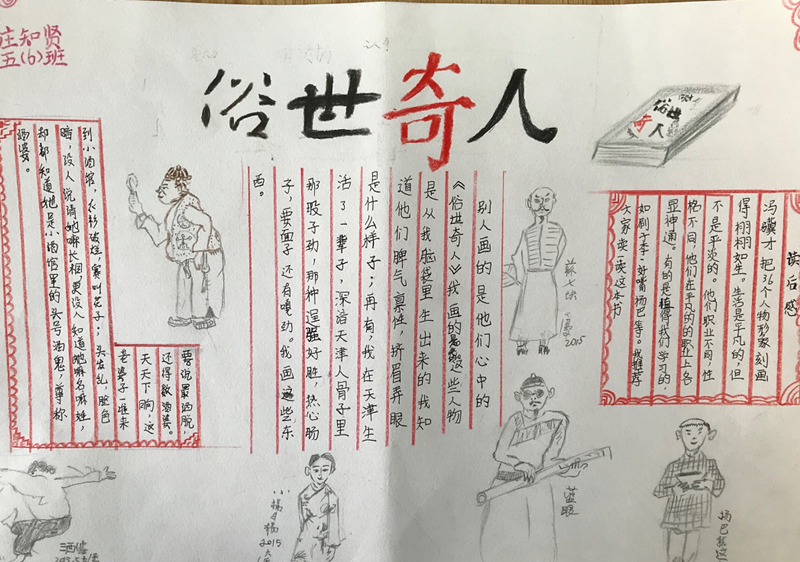 庄知贤
五(6)班
俗世奇人
俗世
奇人
读后感
冯骥才把36个人物形象刻画
得栩栩如生。生活是平凡的，但
不是平淡的。他们职业不同，性
格不同，他们在平凡的的职业上各
显神通。有的是值得我们学习的，
如刷子李、好嘴杨巴等。我推荐
大家读一读这本书
别人画的是他们心中的
《俗世奇人》我画的这些人物
是从我脑袋里生出来的我知
道他们脾气禀性，挤眉弄眼
是什么样子；再有，我在天津生
活了一辈子，深谙天津人骨子里
那股子劲，那种逞强好胜，热心肠
子，要面子还有嘎劲。我画这些东
西。
要说最洒脱，
还得数酒婆。
天天下晌，这
老婆子一准来
到小酒馆，衣衫破烂，赛叫花子；头发乱，脸色
暗，没人说清她嘛长相，更没人知道她嘛名嘛姓，
却都知道她是小酒馆里的头号酒鬼，尊称
酒婆。
苏七块
2015
蓝眼
2015
酒婆